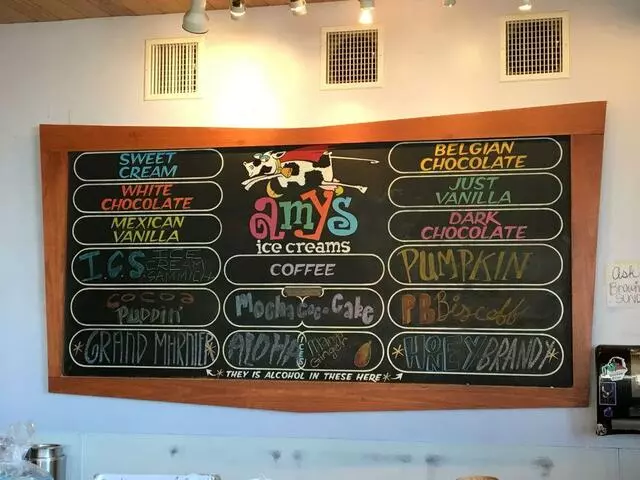 SWEET
CREAM
WHITE
CHOCOLATE
MEXICAN
VANILLA
I.C.S
ICE
CREAM
SAMMICH
COCOA
PUDDIN'
*GRAND MARNIER*
amy's
ice creams
COFFEE
Mocha Coco Cake
ALOHA
ICES
Mango
Ginger
BELGIAN
CHOCOLATE
JUST
VANILLA
DARK
CHOCOLATE
PUMPKIN
PB Biscoff
*HONEY BRANDY*
*THEY IS ALCOHOL IN THESE HERE*
Ask